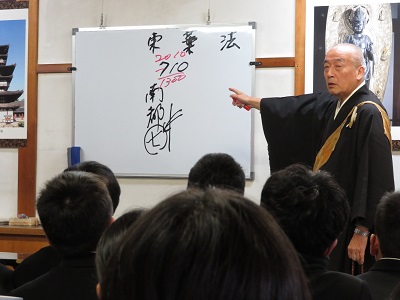 東 薬 法
2010
-710
1300
南都